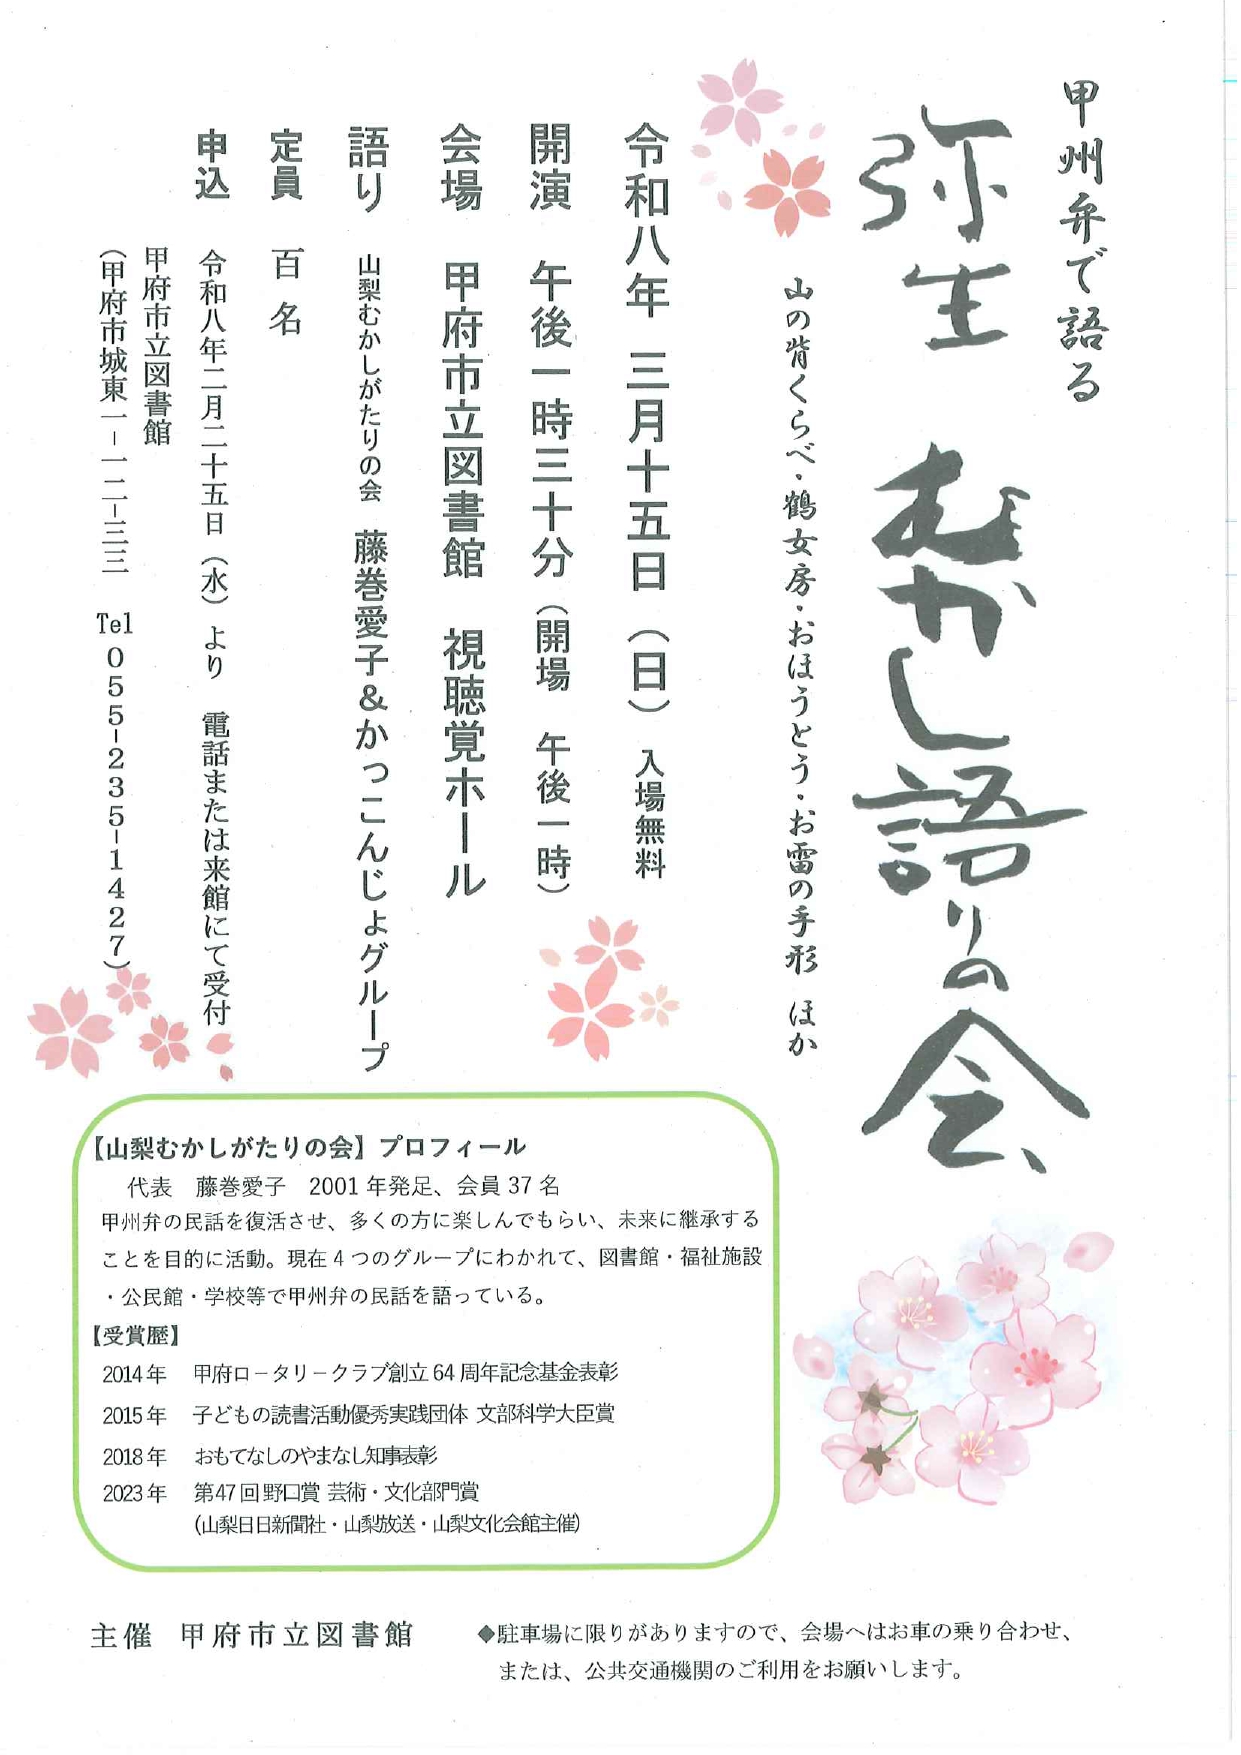 甲州弁で語る
弥生 むかし語りの会
山の背くらべ・鶴女房・おほうとう・お雷の手形 ほか
令和八年 三月十五日（日） 入場無料
開演 午後一時三十分（開場 午後一時）
会場 甲府市立図書館 視聴覚ホール
語り 山梨むかしがたりの会 藤巻愛子＆かっこんじょグループ
定員 百名
申込 令和八年二月二十五日（水）より 電話または来館にて受付
甲府市立図書館
（甲府市城東一－一二－三三 Tel 055-235-1427）
【山梨むかしがたりの会】プロフィール
代表 藤巻愛子 2001年発足、会員37名
甲州弁の民話を復活させ、多くの方に楽しんでもらい、未来に継承する
ことを目的に活動。現在4つのグループにわかれて、図書館・福祉施設
・公民館・学校等で甲州弁の民話を語っている。
【受賞歴】
2014年 甲府ロータリークラブ創立64周年記念基金表彰
2015年 子どもの読書活動優秀実践団体 文部科学大臣賞
2018年 おもてなしのやまなし知事表彰
2023年 第47回野口賞 芸術・文化部門賞
(山梨日日新聞社・山梨放送・山梨文化会館主催)
主催 甲府市立図書館
◆駐車場に限りがありますので、会場へはお車の乗り合わせ、
または、公共交通機関のご利用をお願いします。